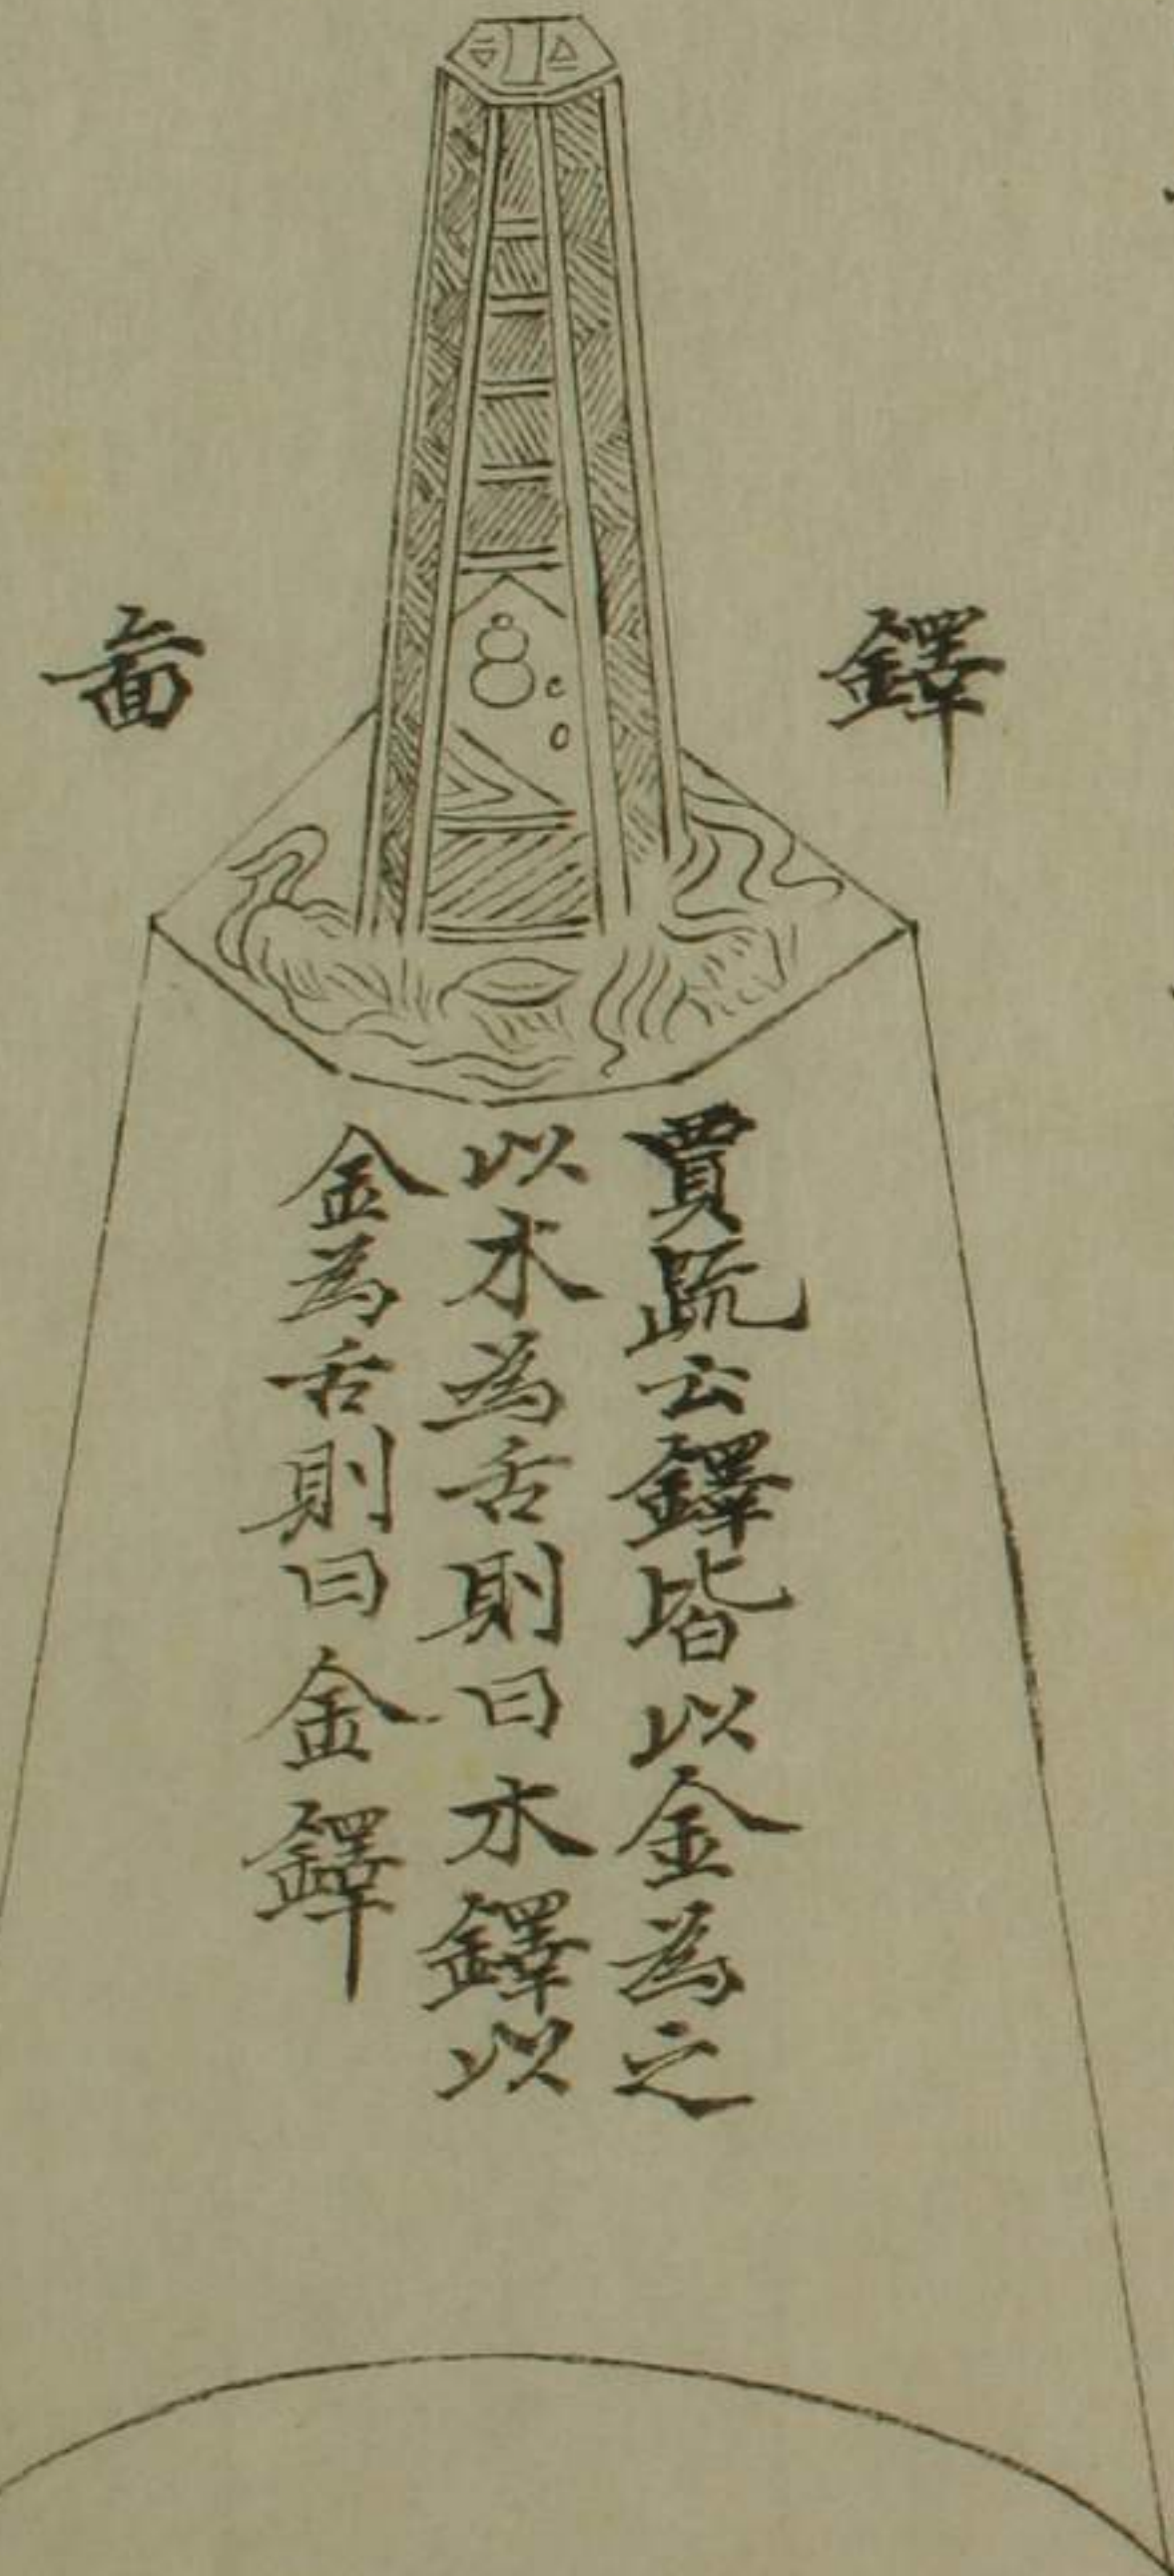 鐸
啚
賈疏云鐸皆以金為之
以木為舌則曰木鐸以
金為舌則曰金鐸